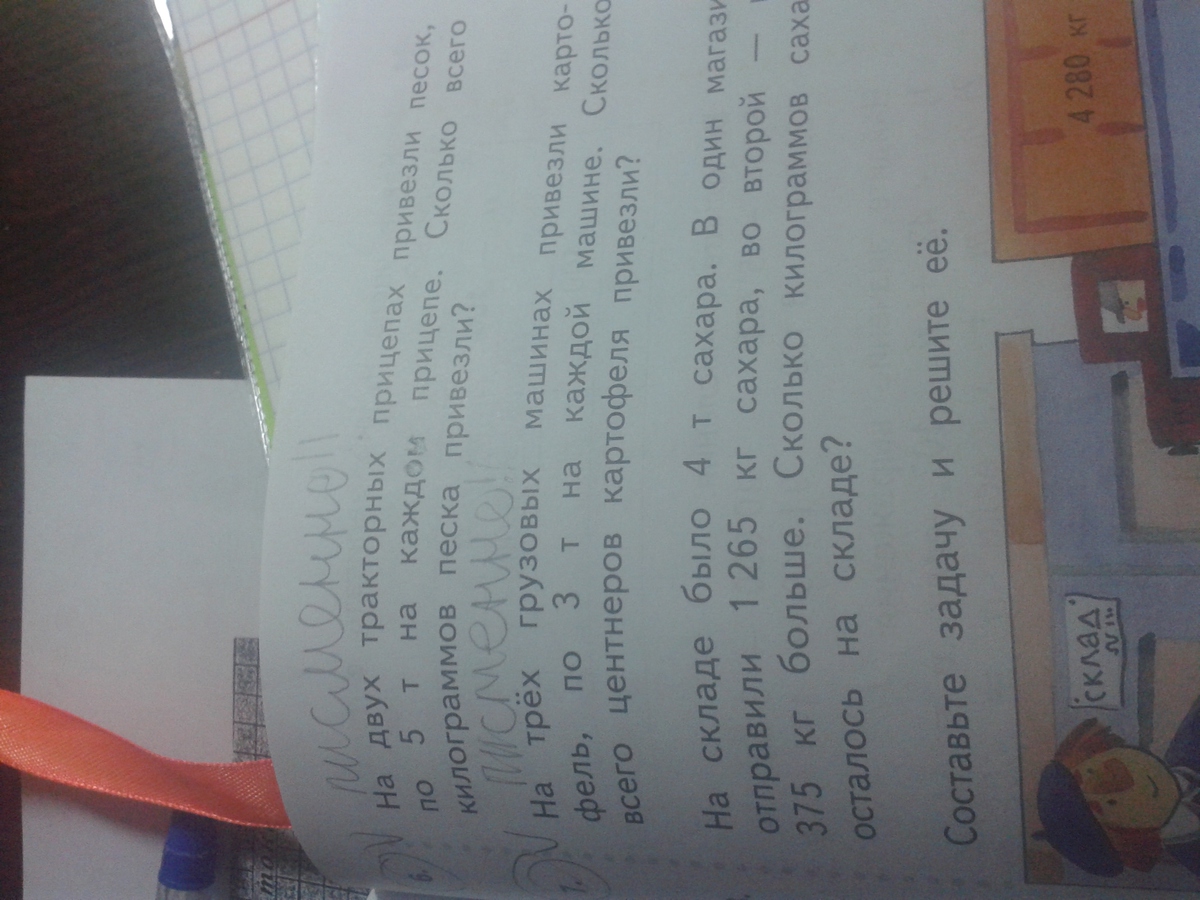 письменно!!
6. На двух тракторных прицепах привезли песок,
по 5 т на каждом прицепе. Сколько всего
килограммов песка привезли?
письменно!
7. На трёх грузовых машинах привезли карто-
фель, по 3 т на каждой машине. Сколько
всего центнеров картофеля привезли?
На складе было 4 т сахара. В один магази
отправили 1 265 кг сахара, во второй —
375 кг больше. Сколько килограммов саха
осталось на складе?
Составьте задачу и решите её.
СКЛАД
4 280 кг